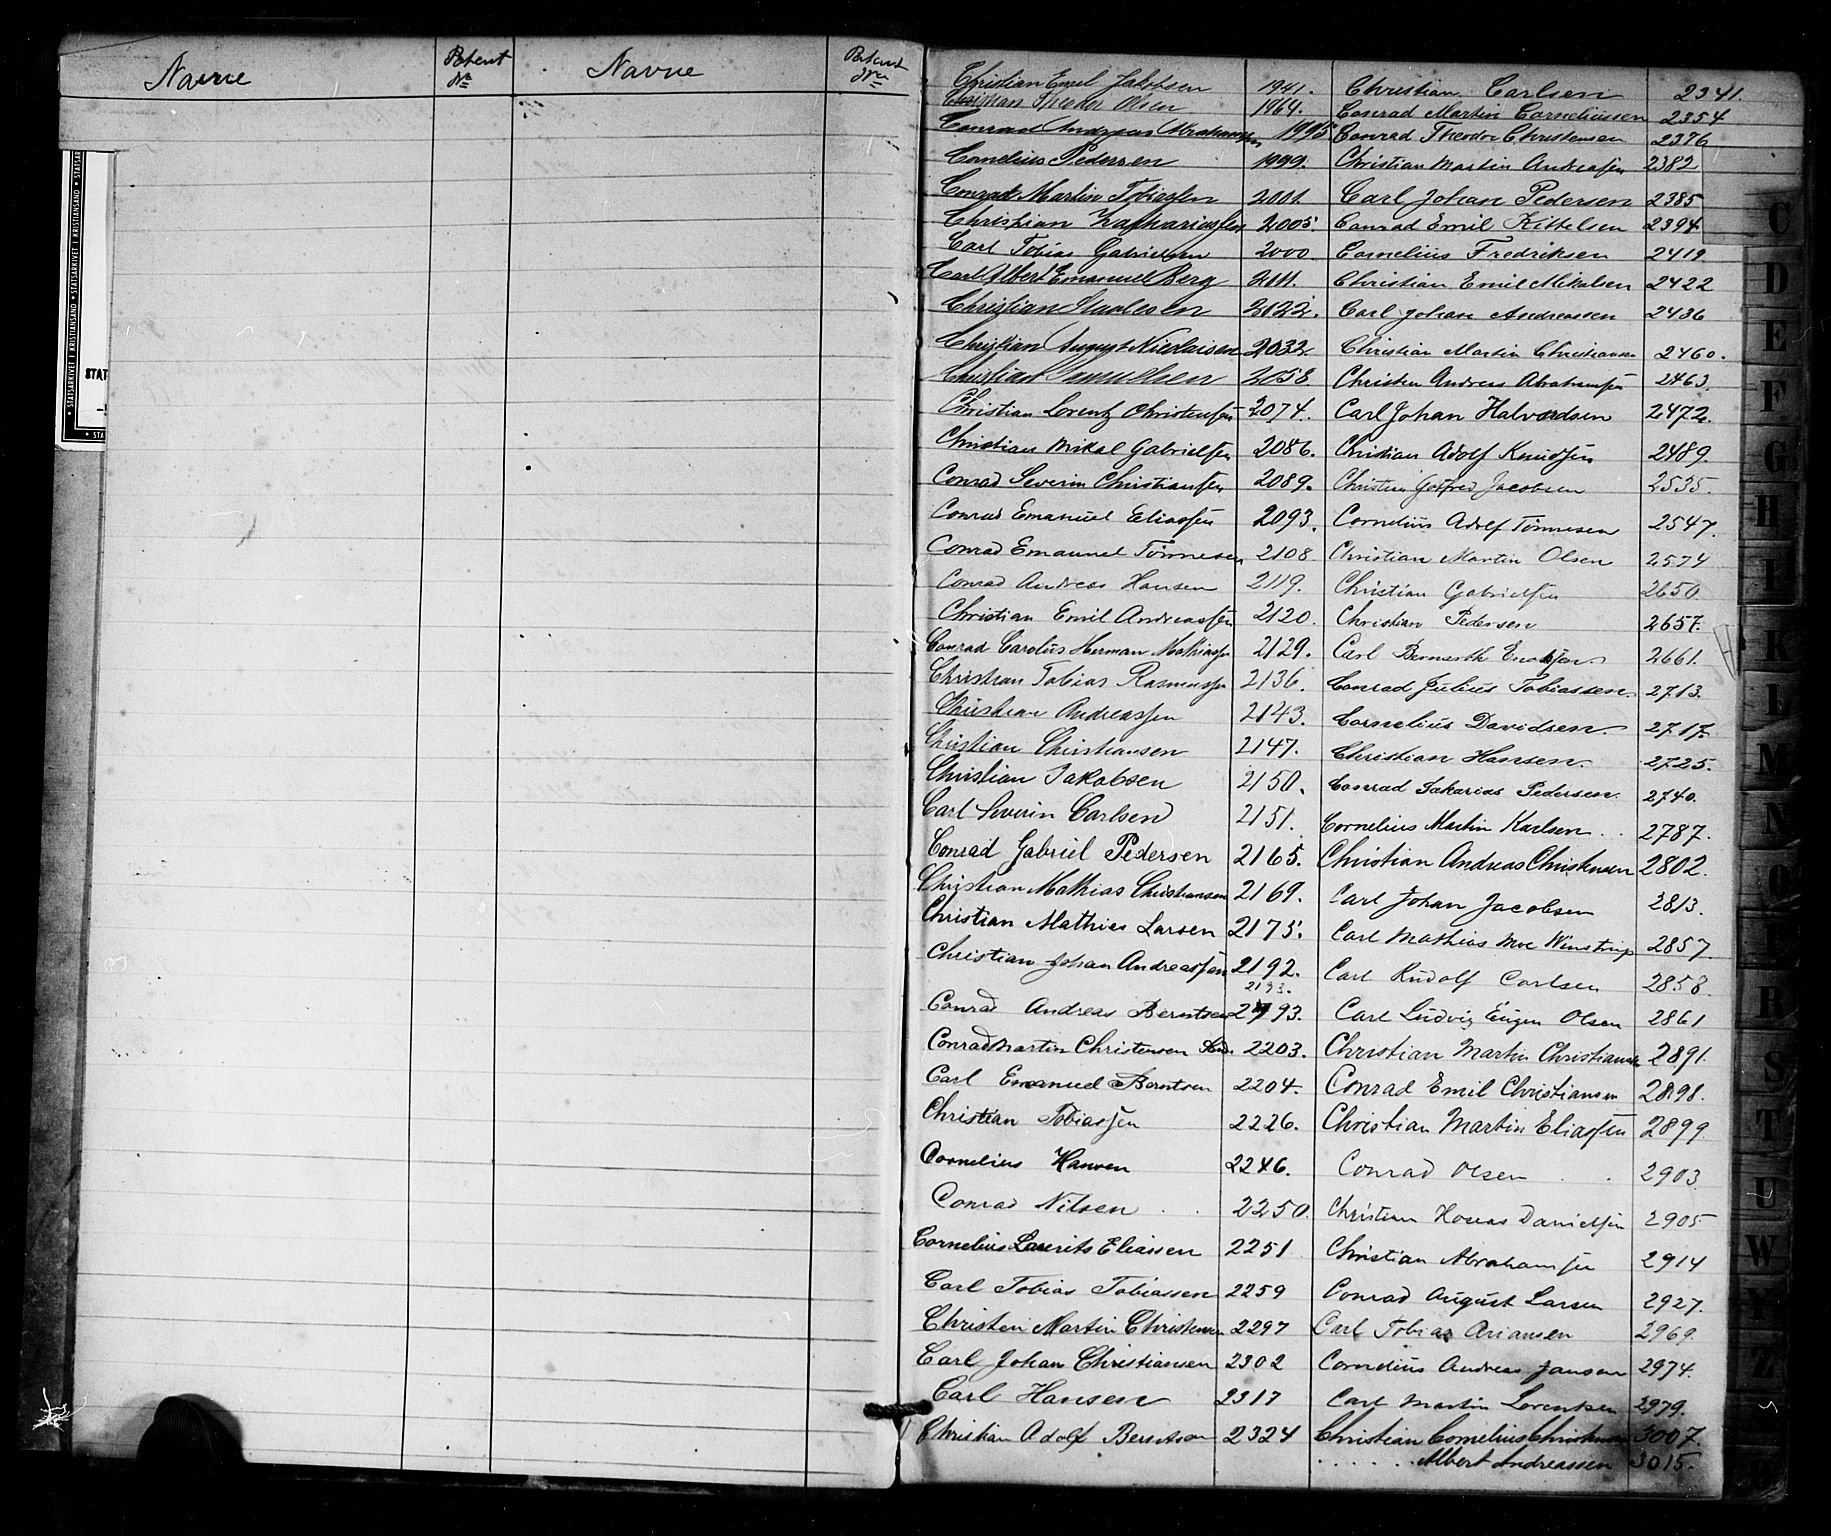 Navne
Patent
Nr
Navne
Patent
Nr
STATSARKIVET I KRISTIANSAND • STATSARKIVET I KRISTIANSAND • STATSAR
STAT
• STA
Christian Emil Jakobsen 1941.
Christian Theodor Olsen 1964.
Conrad Andreas Abrahamsen 1995
Cornelius Pedersen 1999.
Conrad Martin Tobiassen 2001
Christian Zachariassen 2005.
Carl Tobias Gabrielsen 2000
Carl Albert Emanuel Berg 2011.
Christian 2022.
Christian August Nicolaisen 2032
Christian Samuelsen 2058
Christian Lorentz Christensen 2074.
Christian Mikal Gabrielsen 2086.
Conrad Severin Christiansen 2089.
Conrad Emanuel Eliassen 2093.
Conrad Emanuel Tönnesen 2108
Conrad Andreas Hansen 2119.
Christian Emil Andreassen 2120
Conrad Carolius Herman Mathiassen 2129.
Christian Tobias Rasmussen 2136.
Christian Andreassen 2143.
Christian Christiansen 2147.
Christian Jakobsen 2150.
Carl Severin Carlsen 2151.
Conrad Gabriel Pedersen 2165.
Christian Mathias Christiansen 2169.
Christian Mathias Larsen 2175.
Christian Johan Andreassen 2192.
2193.
Conrad Andreas Berntsen 2193.
Conrad Martin Christensen 2203.
Carl Emanuel Berntsen 2204.
Christian Tobiassen 2226.
Cornelius Hansen 2246.
Conrad Nilsen 2250
Cornelius Laurits Eliassen 2251
Carl Tobias Tobiassen 2259
Christen Martin Christensen 2297
Carl Johan Christiansen 2302
Carl Hansen 2317
Christian Adolf Berntsen 2324
Christian Carlsen 2341.
Conrad Martin Corneliussen 2354
Conrad Theodor Christensen 2376
Christian Martin Andreassen 2382
Carl Johan Pedersen 2385
Conrad Emil Kittelsen 2394
Cornelius Fredriksen 2419
Christian Emil Mikalsen 2422
Carl Johan Andreassen 2436
Christian Martin Christiansen 2460.
Christen Andreas Abrahamsen 2463
Carl Johan Halvordsen 2472.
Christian Adolf Knudsen 2489.
Christen Gotfred Jacobsen 2535.
Cornelius Adolf Tönnesen 2547.
Christian Martin Olsen 2574
Christian Gabrielsen 2650
Christian Pedersen 2657.
Carl Enoksen 2661.
Conrad Julius Tobiassen 2713.
Cornelius Davidsen 2717
Christian Hansen. 2725.
Conrad Sakarias Pedersen. 2740.
Cornelius Martin Karlsen. 2787.
Christian Andreas Christensen 2802.
Carl Johan Jacobsen 2813.
Carl Mathias Moe Winstrup 2857
Carl Rudolf Carlsen 2858
Carl Ludvig Eugen Olsen 2861
Christian Martin Christiansen 2891.
Conrad Emil Christiansen 2898.
Christian Martin Eliassen 2899
Conrad Olsen 2903
Christian Danielsen 2905
Christian Abrahamsen 2914
Conrad August Larsen 2927.
Carl Tobias Ariansen 2969.
Cornelius Andreas Jansen 2974.
Carl Martin Lorentsen 2979.
Christian Cornelius Christensen 3007.
. . . . . . Albert Andreassen 3015.
C
D
E
F
G
H
I
K
L
M
N
O
P
R
S
T
U
W
Y
Z
Ø